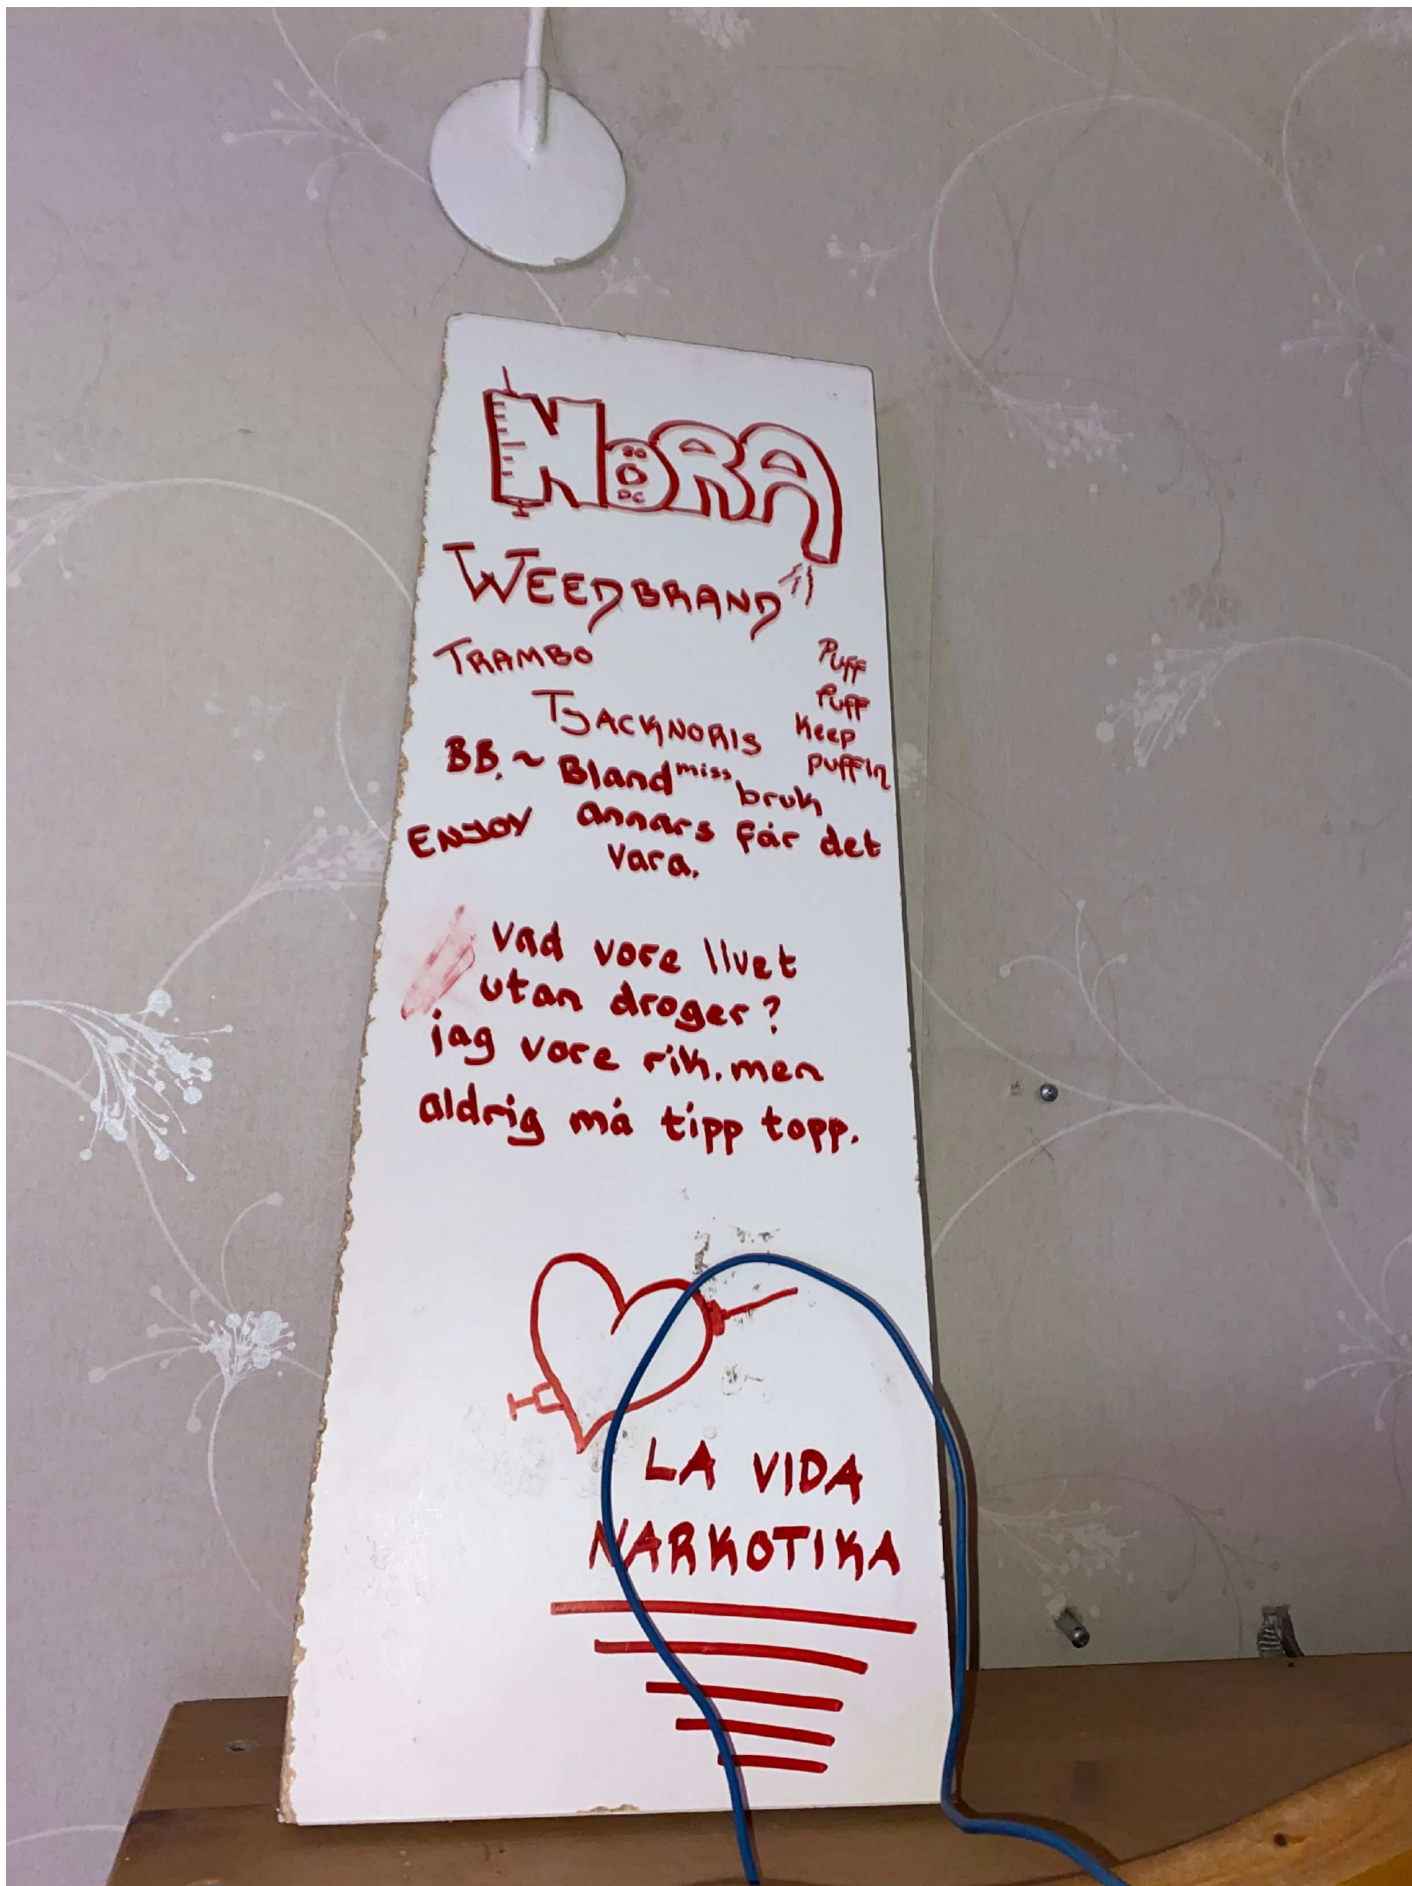 NORA
WEEDBRAND
TRAMBO
TJACKNORIS
Puff
Puff
Keep
puffin
BB. ~ Bland miss bruk
ENJOY annars får det
vara.
Vad vore livet
utan droger?
jag vore rik. men
aldrig må tipp topp.
LA VIDA
NARKOTIKA